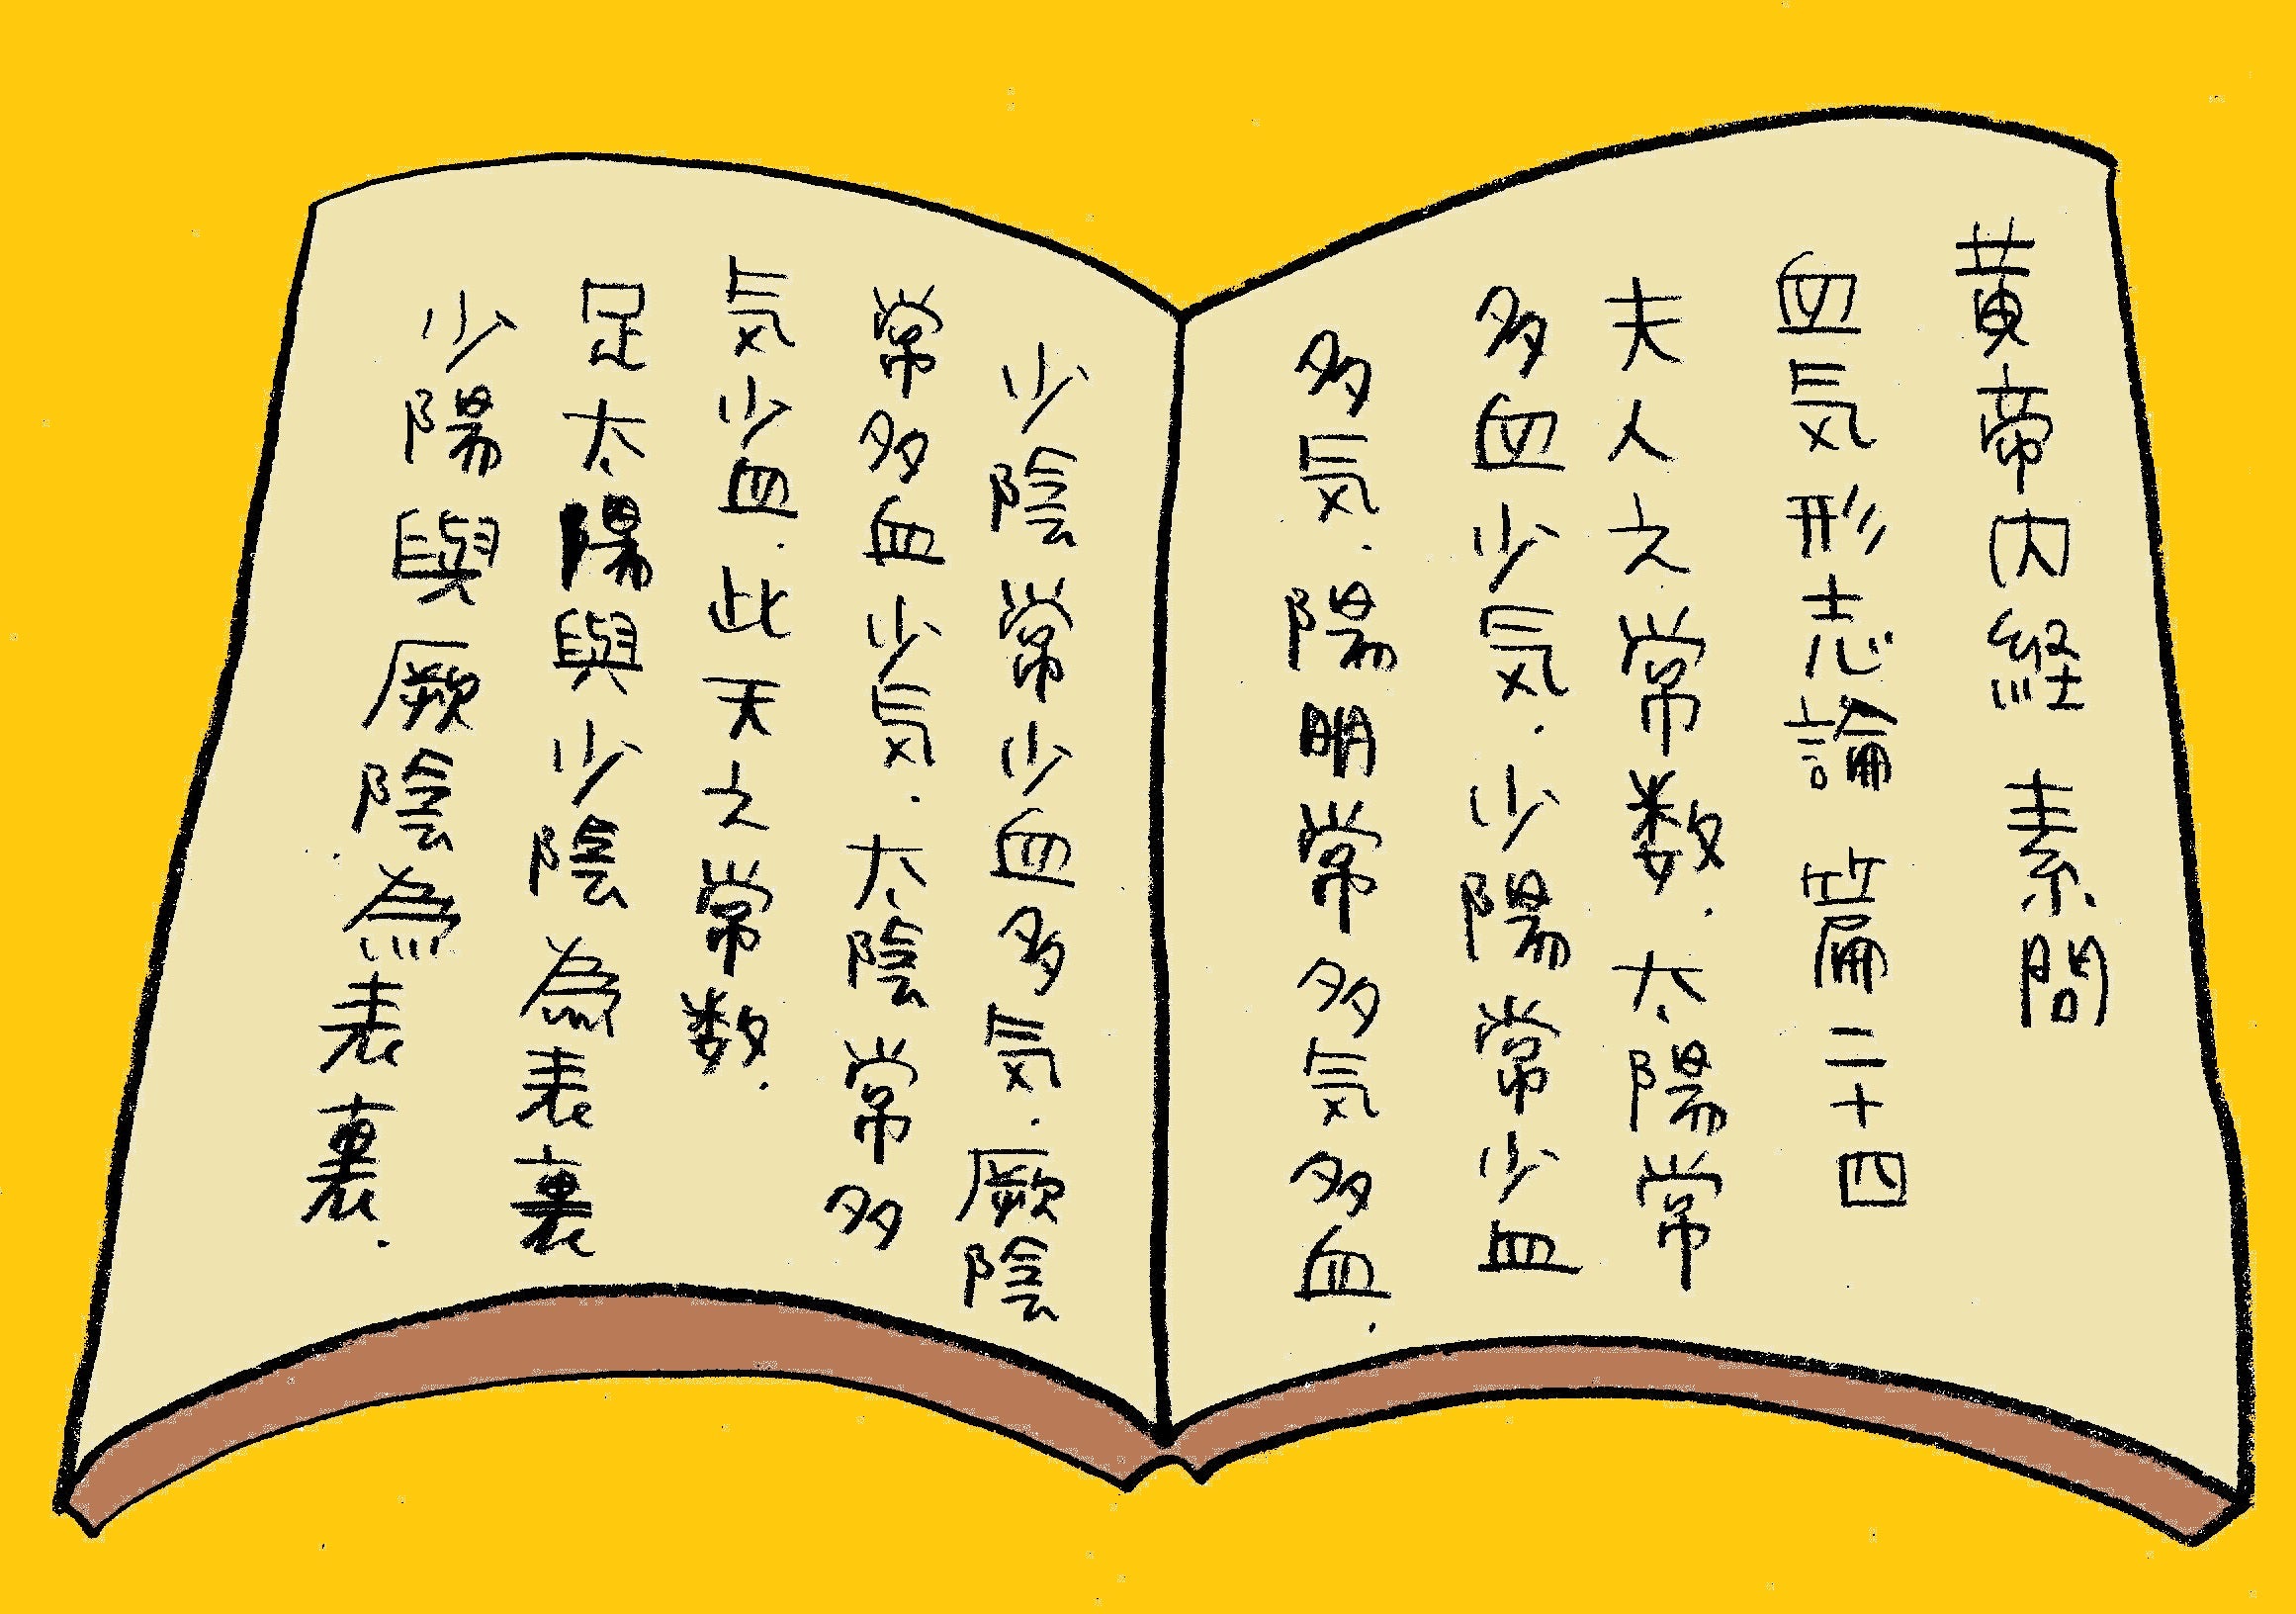 黄帝内経 素問
血気形志論 篇二十四
夫人之常数．太陽常
多血少気．少陽常少血
多気．陽明常多気多血．
少陰常少血多気．厥陰
常多血少気．太陰常多
気少血．此天之常数．
足太陽與少陰為表裏
少陽與厥陰為表裏．